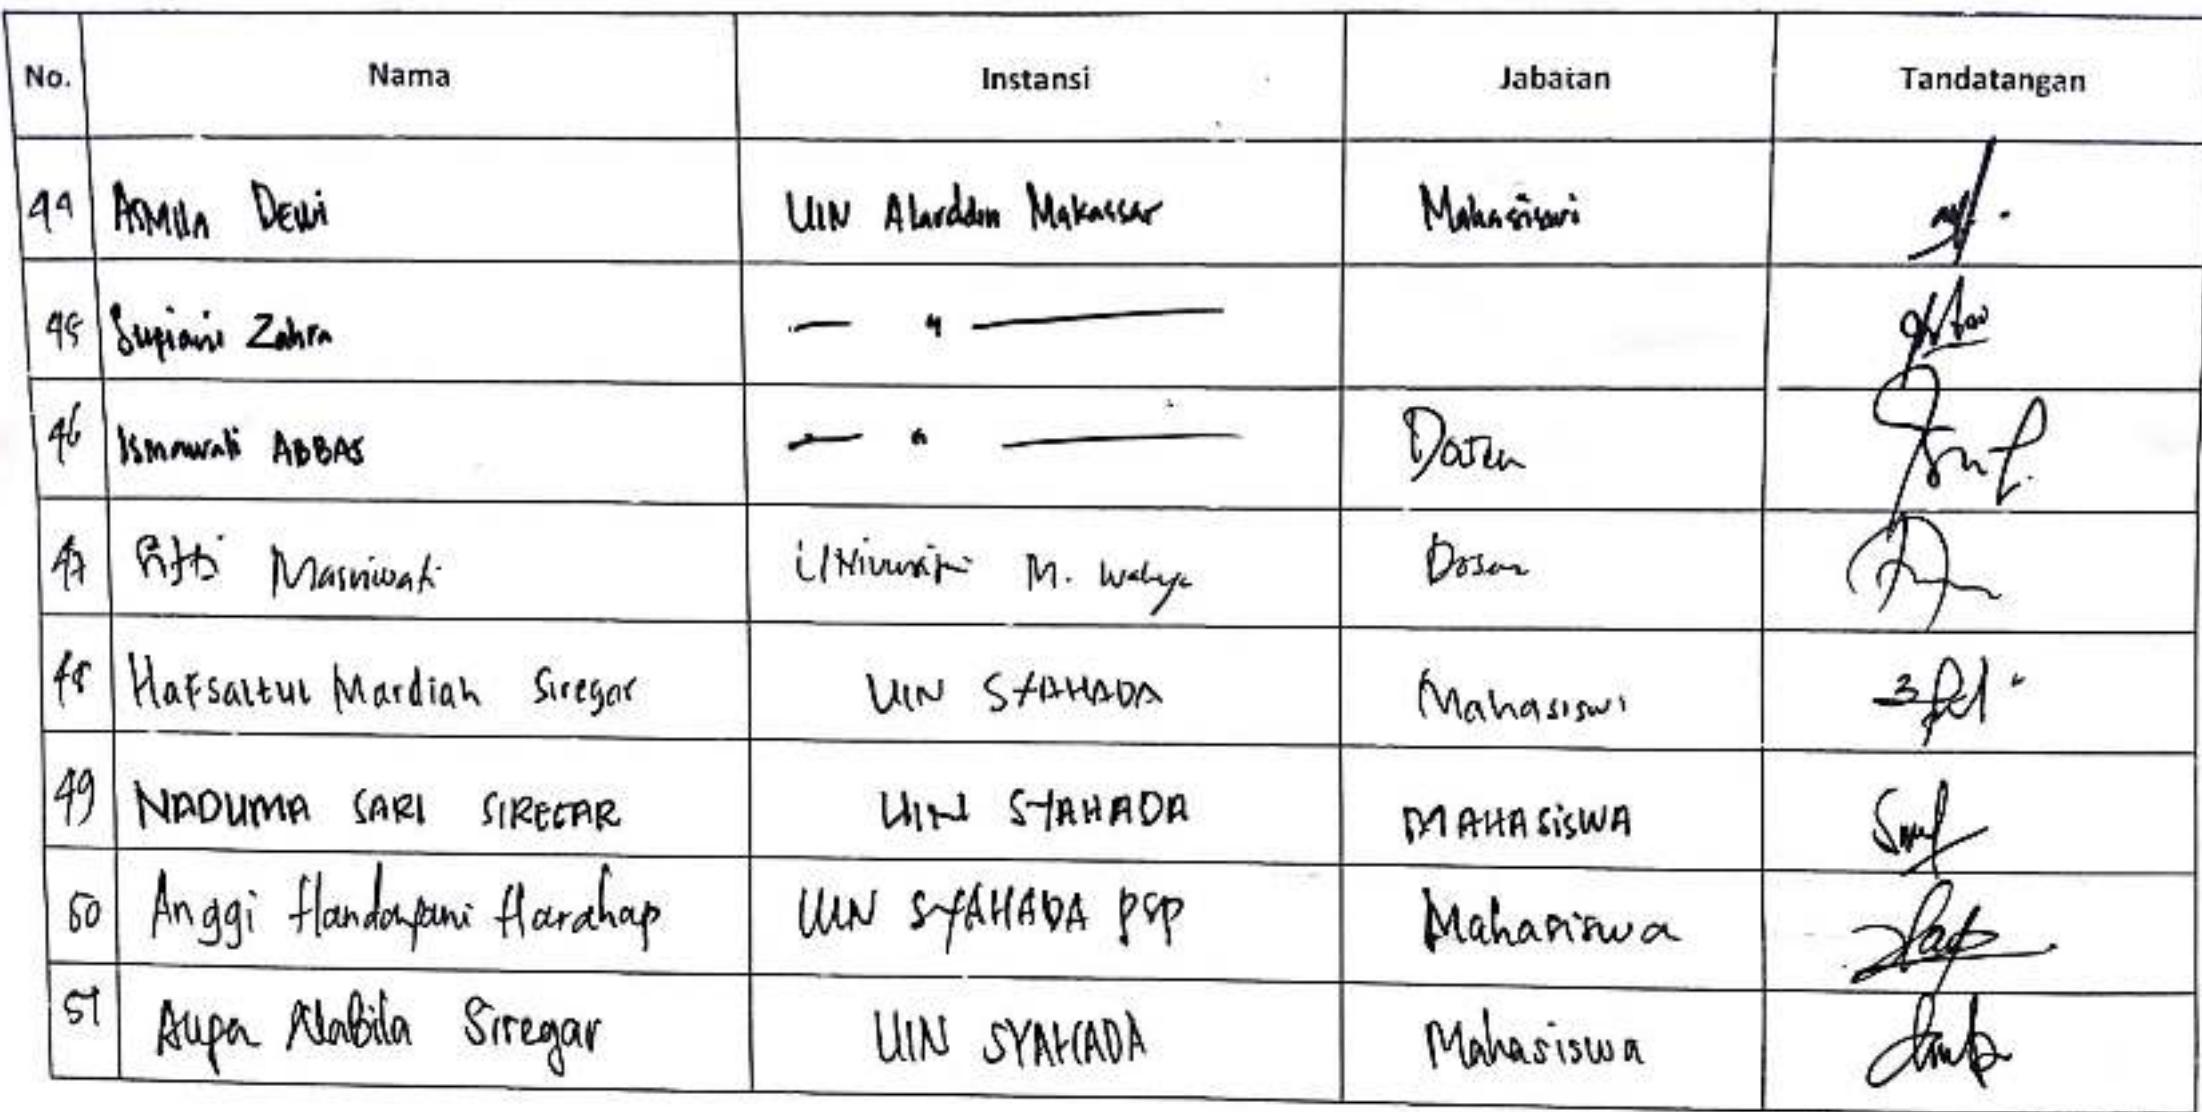 No. Nama Instansi Jabatan Tandatangan
44 Asmila Dewi UIN Alauddin Makassar Mahasiswi
45 Supiani Zahra — " —
46 Ismawati ABBAS — " — Dosen
47 Sitti Masniwati Universitas M. Dosen
48 Hafsattul Mardiah Siregar UIN SYAHADA Mahasiswi
49 NADUMA SARI SIREGAR UIN SYAHADA MAHASiSWA
50 Anggi Handayani Harahap UIN SYAHADA PSP Mahasiswa
51 Aupa Nabila Siregar UIN SYAHADA Mahasiswa